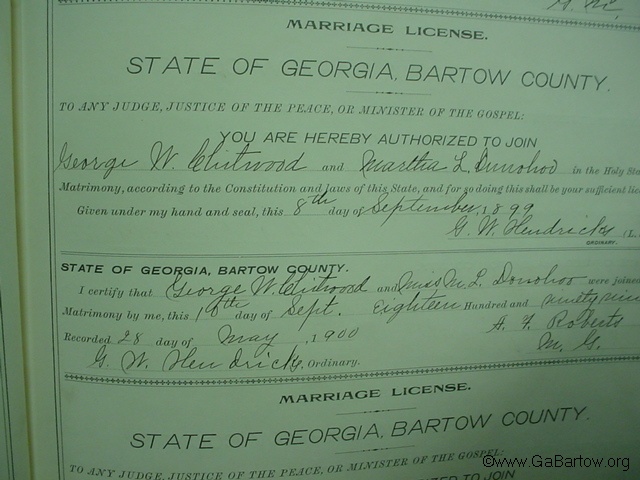 MARRIAGE LICENSE.
STATE OF GEORGIA, BARTOW COUNTY.
TO ANY JUDGE, JUSTICE OF THE PEACE, OR MINISTER OF THE GOSPEL:
YOU ARE HEREBY AUTHORIZED TO JOIN
George W. Chitwood and Martha L Donohoo in the Holy Sta
Matrimony, according to the Constitution and laws of this State, and for so doing this shall be your sufficient lice
Given under my hand and seal, this 8th day of September, 1899
G. W. Hendricks (L.
ORDINARY.
STATE OF GEORGIA, BARTOW COUNTY.
I certify that George W. Chitwood and Miss M. L Donohoo were joined
Matrimony by me, this 10th day of Sept. Eighteen Hundred and ninety nine
Recorded 28 day of May, 1900 A. F. Roberts
G. W. Hendricks. Ordinary. M. G.
MARRIAGE LICENSE.
STATE OF GEORGIA, BARTOW COUNTY.
TO ANY JUDGE, JUSTICE OF THE PEACE, OR MINISTER OF THE GOSPEL:
ED TO JOIN
©www.GaBartow.org